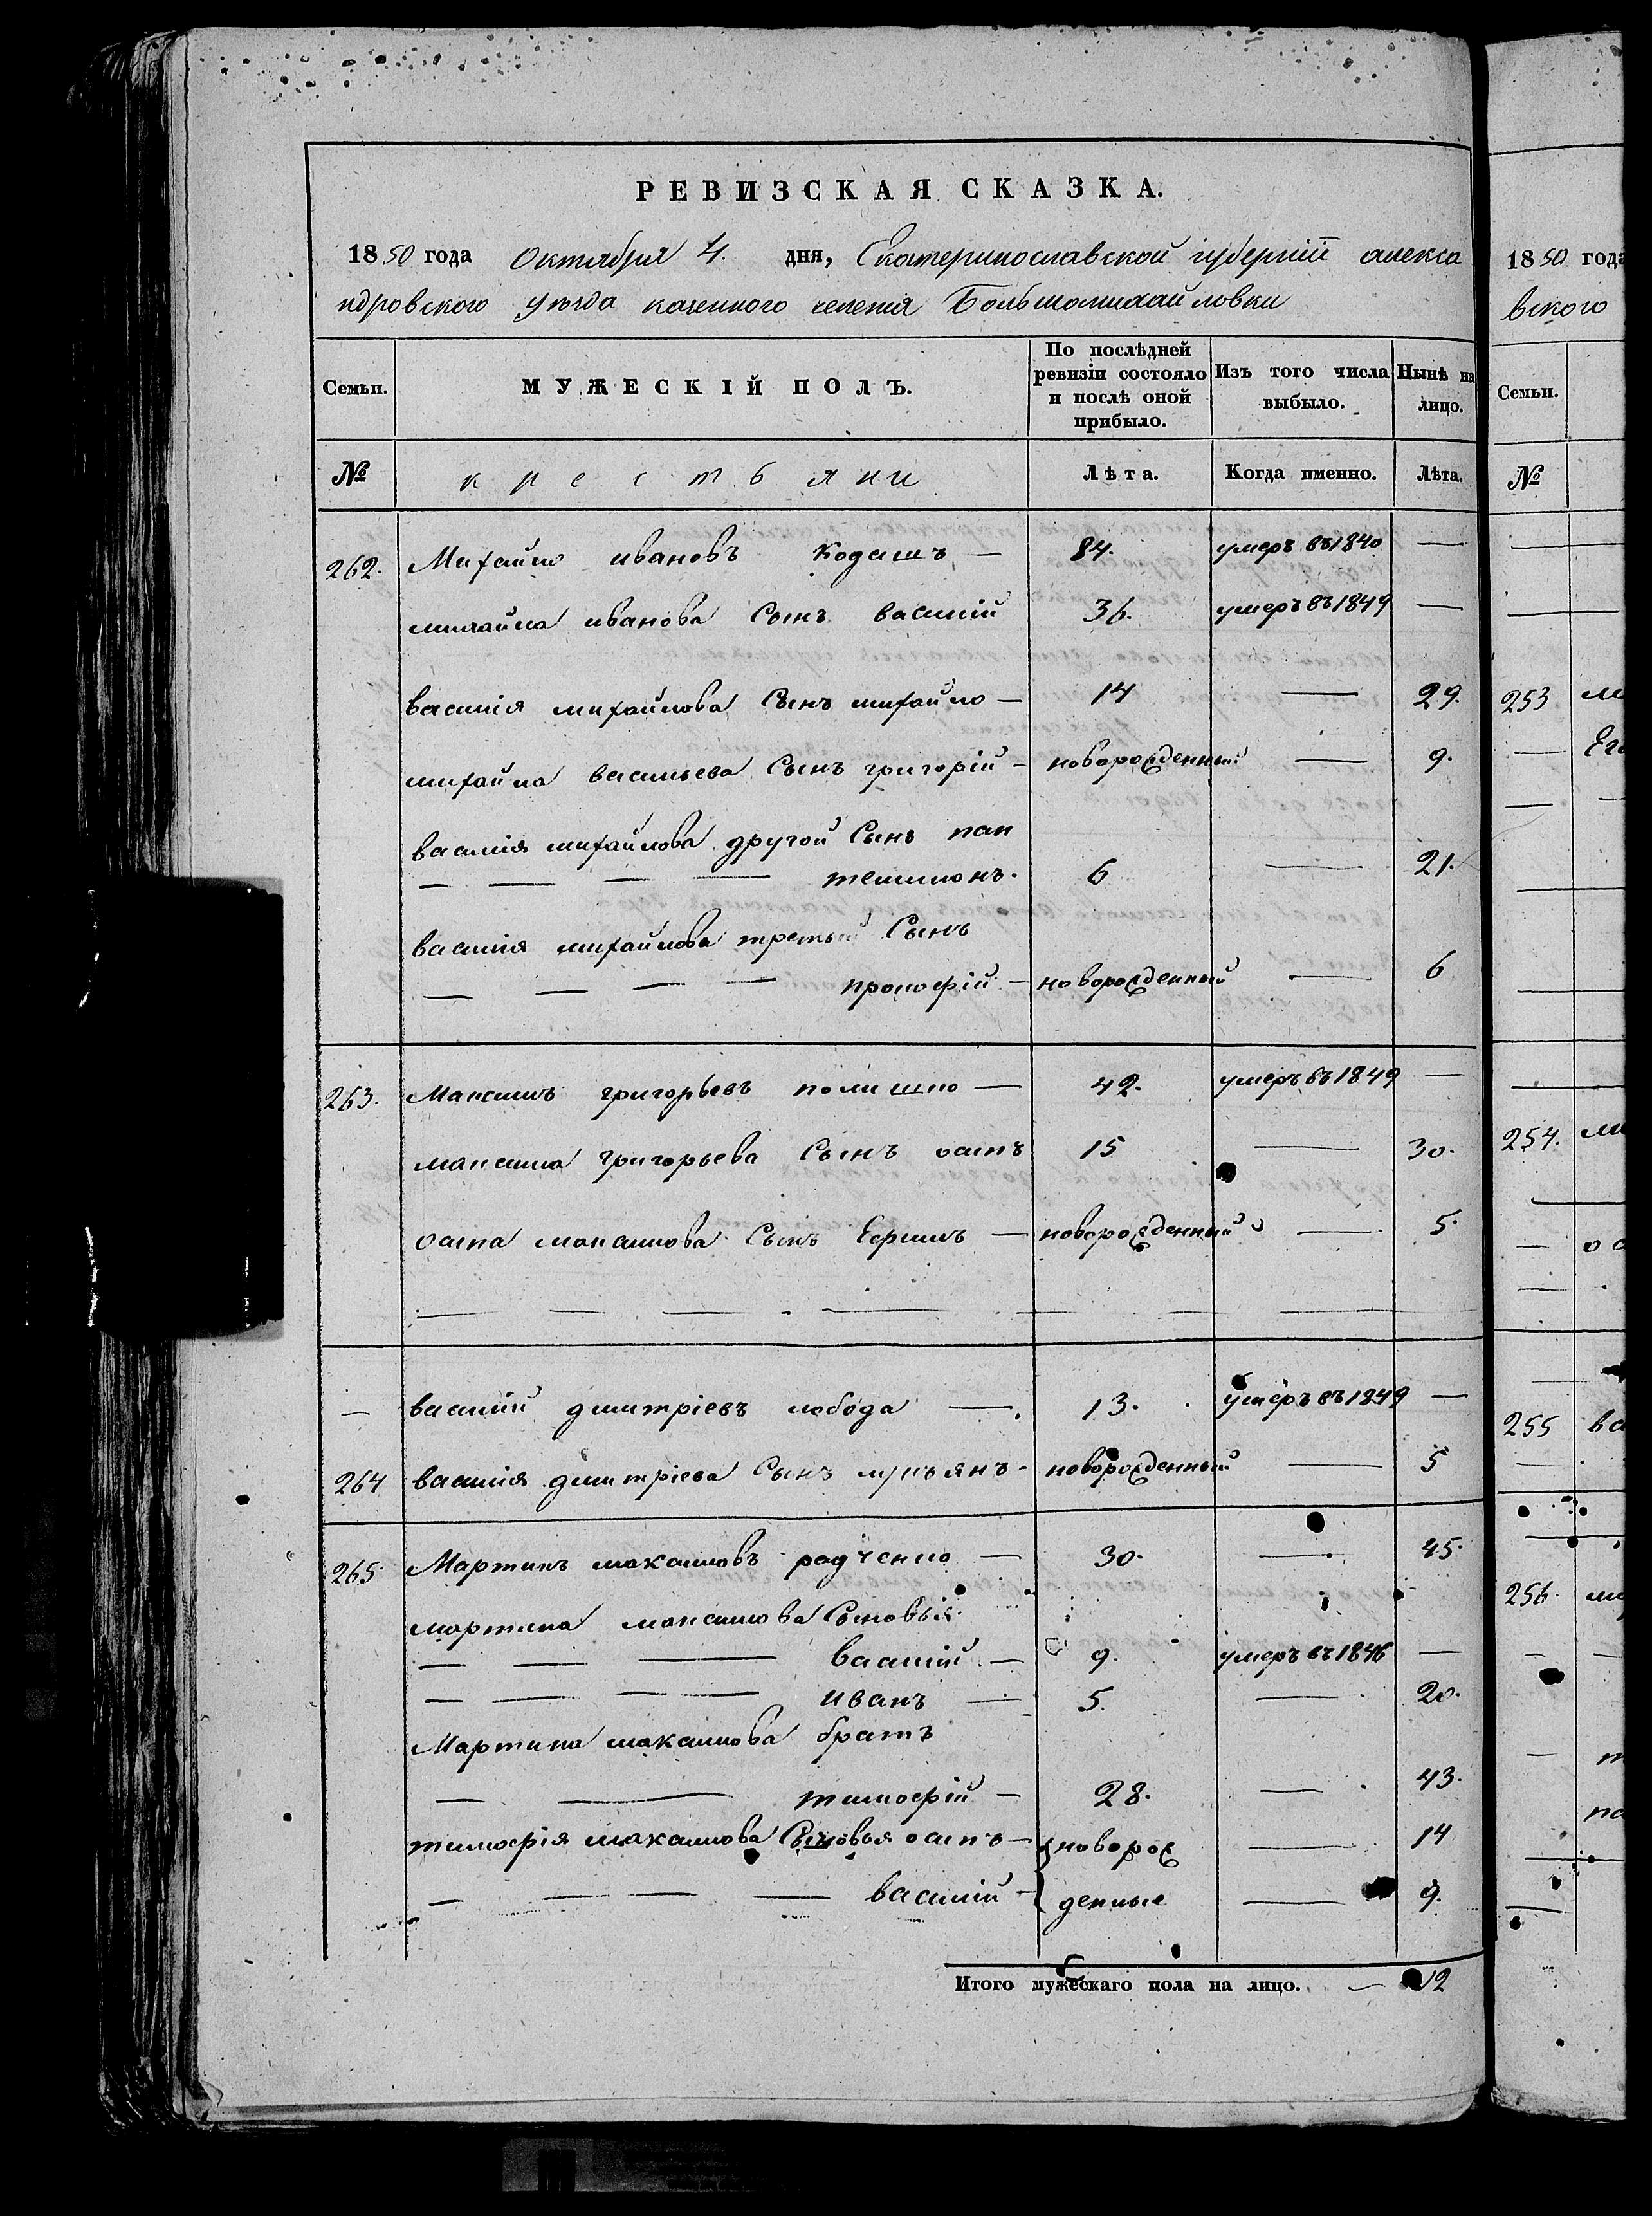 РЕВИЗСКАЯ СКАЗКА.
1850 года Октября 4. дня, Екатеринославской губернии алекса
ндровского уезда казенного селения Большомихайловки
Семьи. МУЖЕСКІЙ ПОЛЪ. По послѣдней ревизіи состояло и послѣ оной прибыло. Изъ того числа выбыло. Нынѣ на лицо.
№ крестьяни Лѣта. Когда именно. Лѣта.
262. Михайло ивановъ Кодашъ — 84. умеръ въ 1840 —
михайла иванова Сынъ василій 36. умеръ въ 1849 —
василія михайлова Сынъ михайло — 14 — 29.
михайла васильева Сынъ григорій — новорожденный — 9.
василія михайлова другой Сынъ пан
— — — — телимонъ. 6 — 21.
василія михайлова третьй Сынъ
— — — — прокофій — новорожденный — 6
263. Максимъ григорьевъ полишко — 42. умеръ въ 1849 —
максима григорьева Сынъ осипъ 15 — 30.
осипа максимова Сынъ Ефимъ — новорожденный — 5.
— василій дмитріевъ лобода — 13. умеръ въ 1849 —
264 василія дмитріева Сынъ лукьянъ - новорожденный — 5
265. Мартинъ максимовъ радченко — 30. — 45.
мартина максимова Сыновья
— — — василій — 9. умеръ въ 1846 —
— — — — иванъ — 5. — 20.
Мартина максимова братъ
— — тимофій — 28. — 43.
тимофія максимова Сыновья осипъ — новорож — 14
— — — — василій — денные — 9.
Итого мужескаго пола на лицо. — 12
1850 года
вского
Семьи.
№
253
254.
255
256.